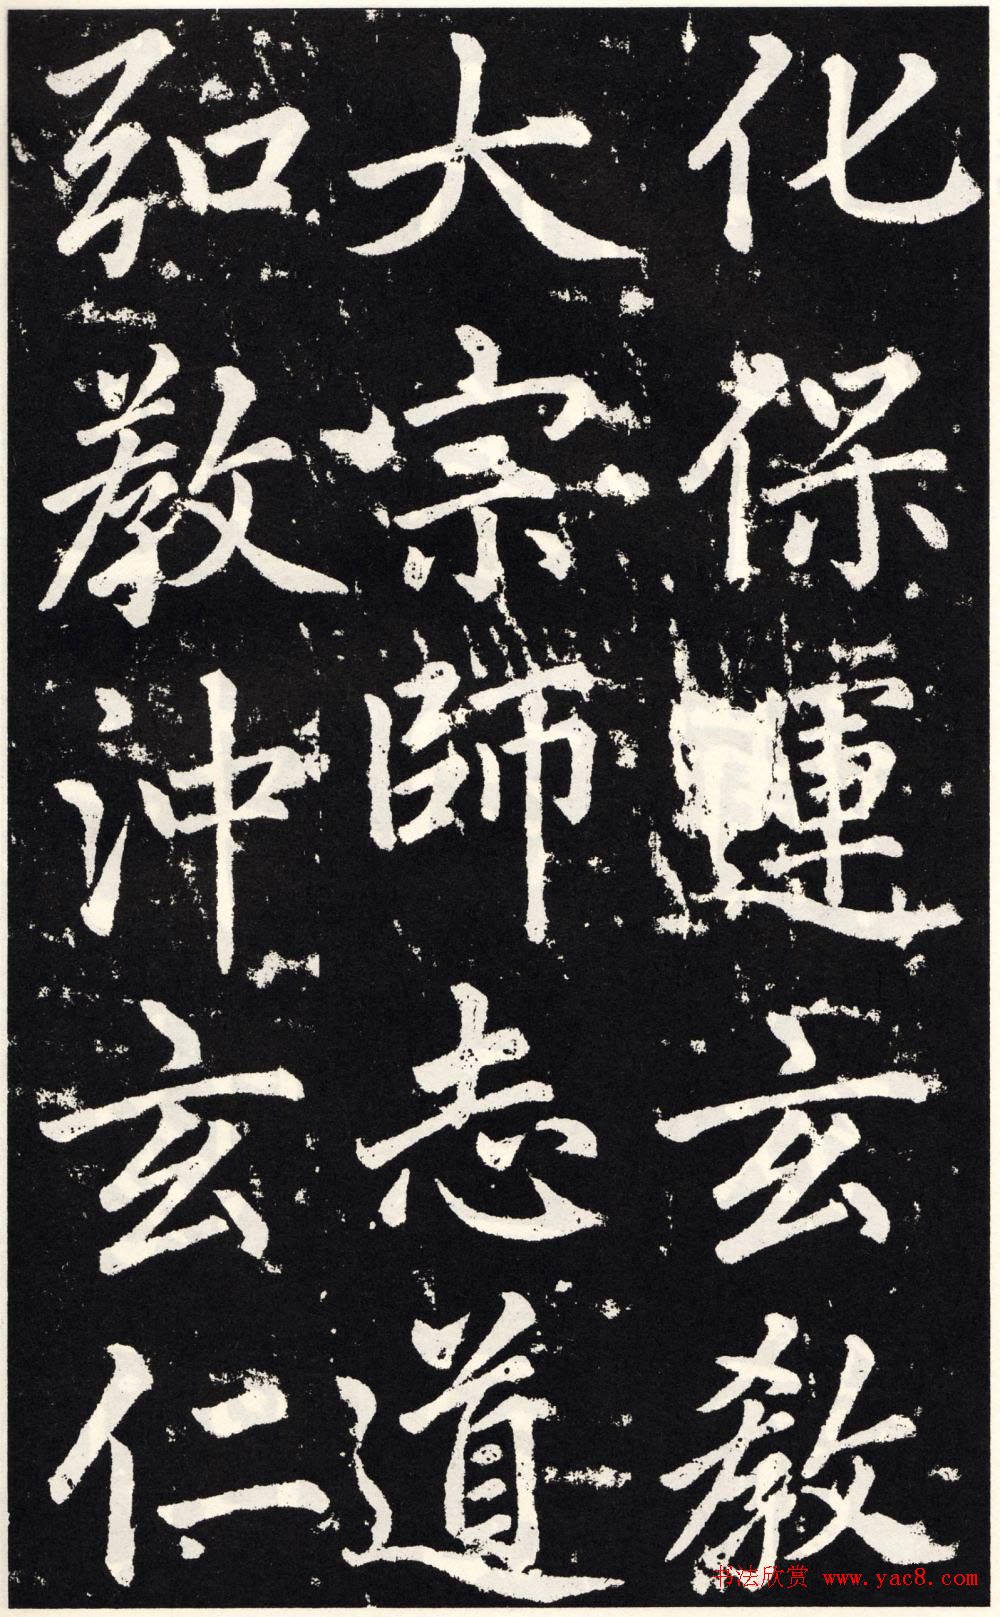 化保運玄教
大宗師志道
弘教沖玄仁
书法欣赏 www.yac8.com